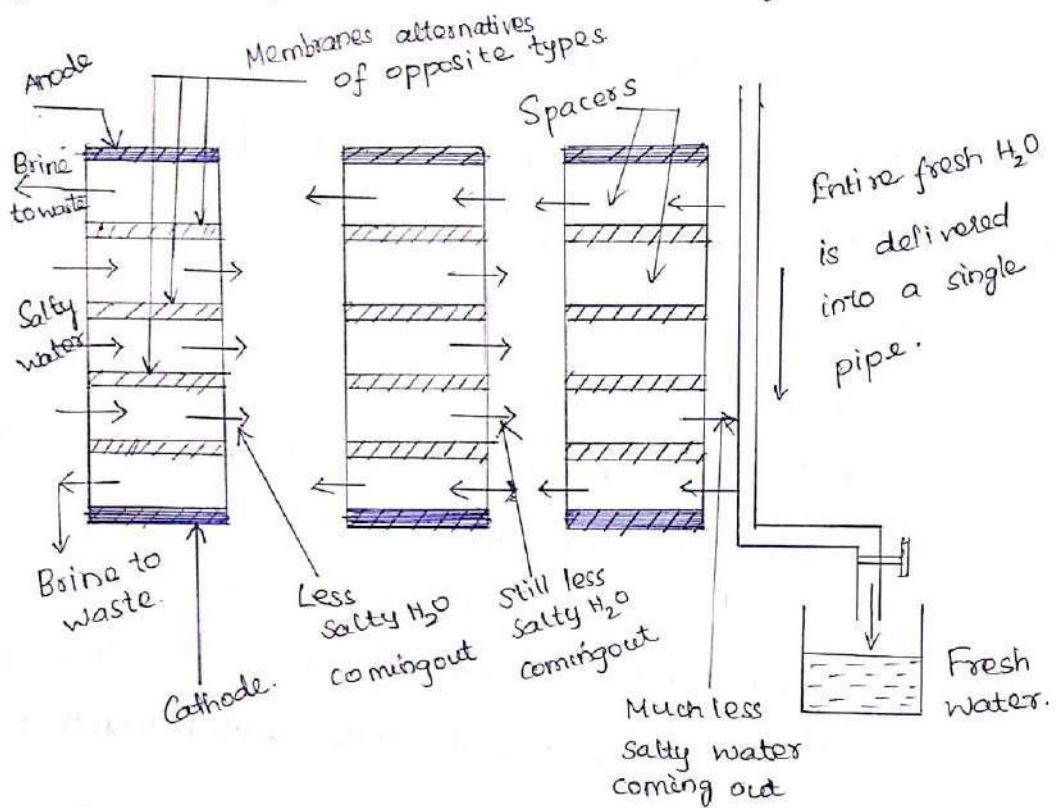 Membranes alternatives
of opposite types
Anode
Spacers
Brine
to waste
Entire fresh H₂O
is delivered
into a single
pipe.
Salty
water
Brine to
waste.
Less
salty H₂O
coming out
Still less
salty H₂O
coming out
Cathode.
Much less
salty water
coming out
Fresh
water.